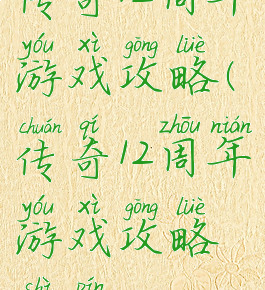 传奇12周年
yóu xì gōng lüè
游戏攻略(
chuán qí zhōu nián
传奇12周年
yóu xì gōng lüè
游戏攻略
shì pín